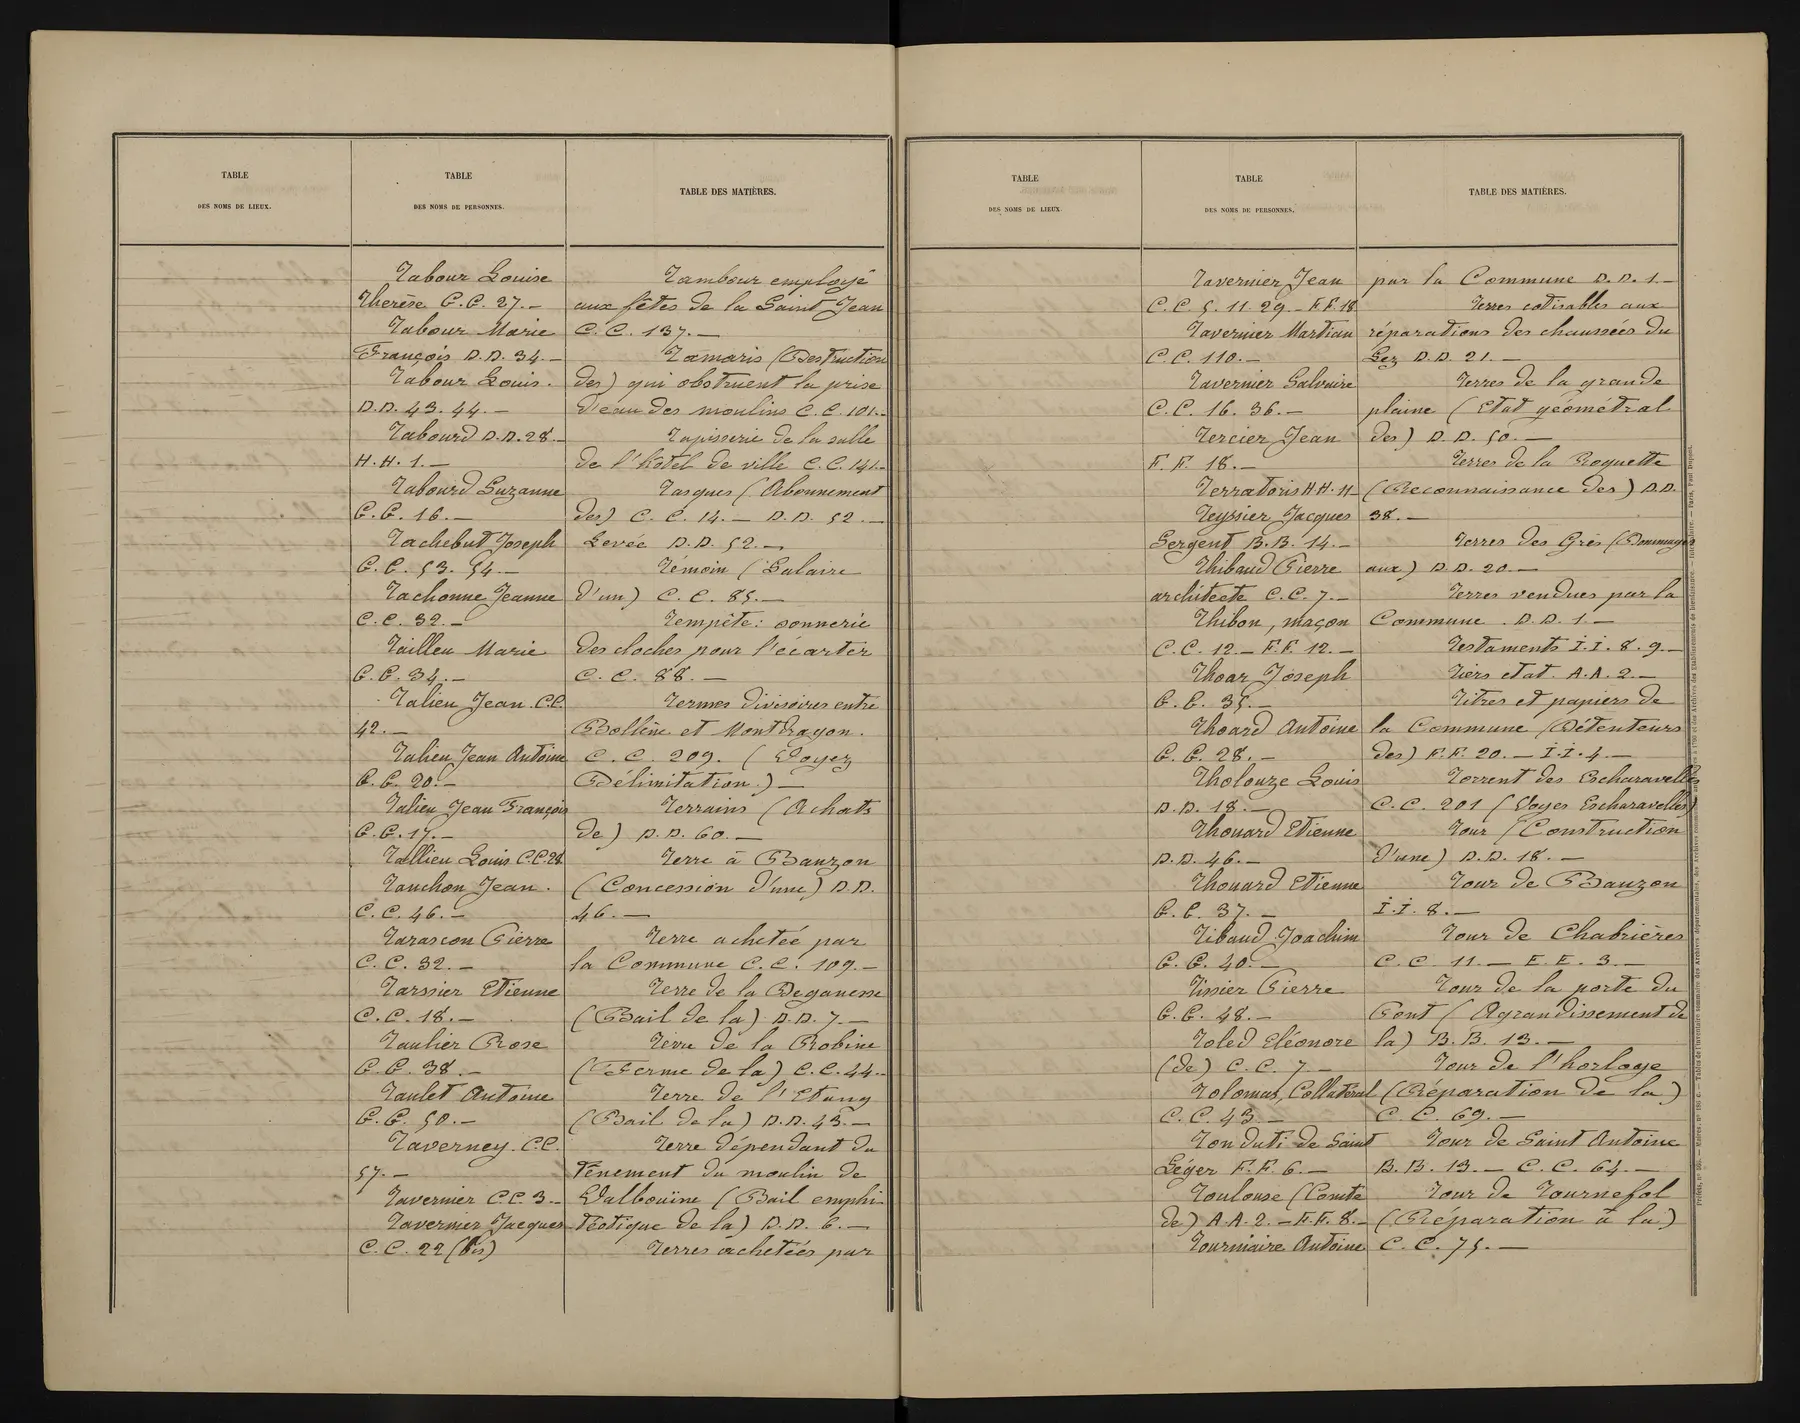 TABLE
DES NOMS DE LIEUX.
TABLE
DES NOMS DE PERSONNES.
TABLE DES MATIÈRES.
Tabour Louise
Therèse G.G. 27. –
Tabour Marie
François D.D. 34. –
Tabour Louis.
D.D. 43. 44. –
Tabourd D.D. 28. –
H.H. 1. –
Tabourd Suzanne
G.G. 16. –
Tachebut Joseph
G.G. 53. 54. –
Tachonne Jeanne
C.C. 32. –
Tailleu Marie
G.G. 34. –
Talieu Jean. C.C.
42. –
Talieu Jean Antoine
G.G. 20. –
Talieu Jean François
G.G. 17. –
Tallieu Louis C.C. 28.
Tanchon Jean.
C.C. 46. –
Tarascon Pierre
C.C. 32. –
Tarssier Etienne
C.C. 18. –
Taulier Rose
G.G. 38. –
Taulet Antoine
G.G. 50. –
Taverney. C.C.
57. –
Tavernier C.C. 3 –
Tavernier Jacques
C.C. 22 (bis)
Tambour employé
aux fêtes de la Saint Jean
C.C. 137. –
Tamaris (Destruction
des) qui obstruent la prise
d'eau des moulins C.C. 101. –
Tapisserie de la salle
de l'hôtel de ville C.C. 141. –
Tasques (Abonnement
des) C.C. 14. – D.D. 52. –
Levée D.D. 52. –
Témoin (Salaire
d'un) C.C. 85. –
Tempête : sonnerie
des cloches pour l'écarter
C.C. 88. –
Termes divisoires entre
Bollène et Montdragon.
C.C. 209. (Voyez
Délimitation.) –
Terrains (Achats
de) D.D. 60. –
Terre à Bauzon
(Concession d'une) D.D.
46. –
Terre achetée par
la Commune C.C. 109. –
Terre de la Deganesse
(Bail de la) D.D. 7. –
Terre de la Robine
(Ferme de la) C.C. 44. –
Terre de l'Etang
(Bail de la) D.D. 43. –
Terre dépendant du
Tènement du moulin de
Valbouïne (Bail emphi-
téotique de la) D.D. 6. –
Terres achetées par
TABLE
DES NOMS DE LIEUX.
TABLE
DES NOMS DE PERSONNES.
TABLE DES MATIÈRES.
Tavernier Jean
C.C. 5. 11. 29 – F.F. 18
Tavernier Martian
C.C. 110. –
Tavernier Salvaire
C.C. 16. 36. –
Tercier Jean
F.F. 18. –
Terratoris H.H. 11 –
Teyssier Jacques
Sergent B.B. 14. –
Thibaud Pierre
architecte C.C. 7. –
Thibon, maçon
C.C. 12 – F.F. 12. –
Thoar Joseph
G.G. 35. –
Thoard Antoine
G.G. 28. –
Tholouze Louis
D.D. 18. –
Thouard Etienne
D.D. 46. –
Thouard Etienne
G.G. 37. –
Tibaud Joachim
G.G. 40. –
Tissier Pierre
G.G. 48. –
Toled Eléonore
(de) C.C. 7 –
Tolomas, Collatéral
C.C. 43 –
Tonduti de Saint
Léger F.F. 6. –
Toulouse (Comte
de) A.A. 2. – F.F. 8. –
Tourniaire Antoine
par la Commune D.D. 1. –
Terres cotisables aux
réparations des chaussées du
Lez D.D. 21. –
Terres de la grande
plaine (Etat géométral
des) D.D. 50. –
Terres de la Roquette
(Reconnaissance des) D.D.
38. –
Terres des Grès (Dommages
aux) D.D. 20. –
Terres vendues par la
Commune. D.D. 1. –
Testaments I.I. 8. 9. –
Tiers etat. A.A. 2. –
Titres et papiers de
la Commune (Détenteurs
des) F.F. 20. – I.I. 4 –
Torrent des Escharavelles
C.C. 201 (Voyez Escharavelles)
Tour (Construction
d'une) D.D. 18. –
Tour de Bauzon
I.I. 8. –
Tour de Chabrières
C.C. 11. – E.E. 3. –
Tour de la porte du
Pont (Agrandissement de
la) B.B. 13. –
Tour de l'horloge
(Réparation de la)
C.C. 69. –
Tour de Saint Antoine
B.B. 13. – C.C. 64. –
Tour de Tournefol
(Réparation à la)
C.C. 75. –